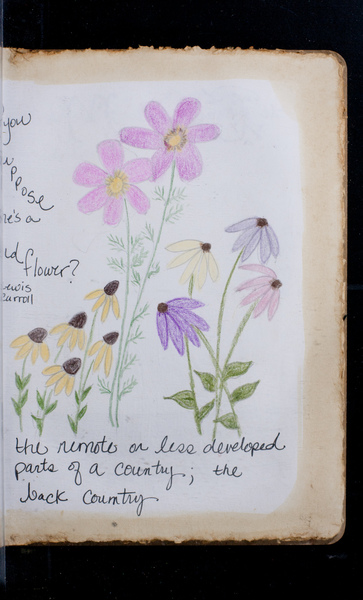 you
ppose
re's a
flower?
ewis
Carroll
the remote or less developed
parts of a country; the
back Country